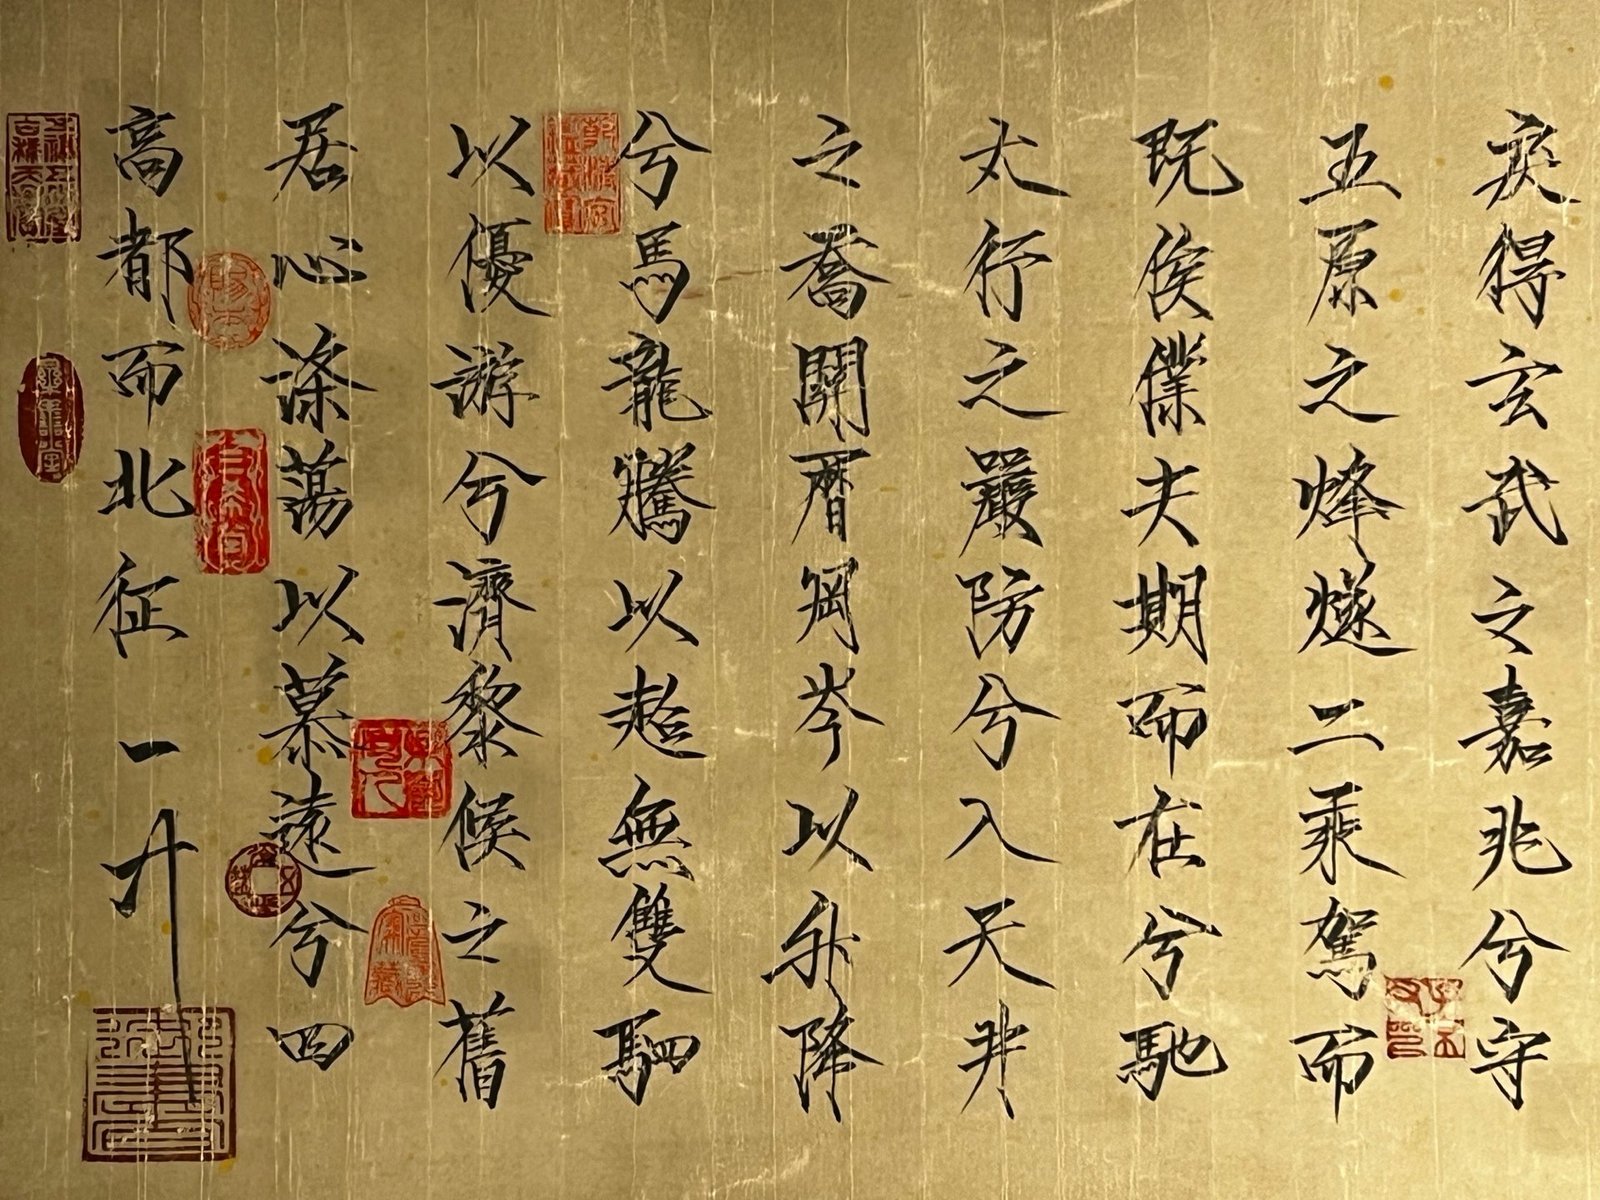 得玄武之嘉兆兮守
五原之烽燧二乘駕而
既俟僕夫期而在兮馳
太行之嚴防兮入天井
之喬關曆岡岑以升降
兮馬龍騰以超無雙駟
以優游兮濟黎候之舊
居心滌蕩以慕遠兮四
高都而北征